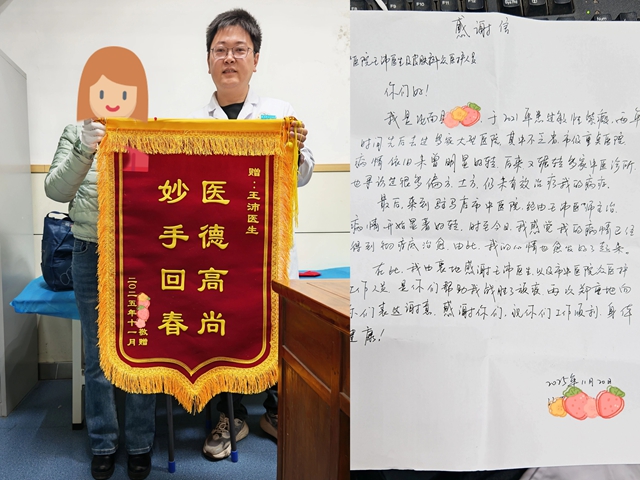 赠：王沛医生
医德高尚
妙手回春
敬赠
二〇二五年十一月
感谢信
医院王沛医生及 科众医护人员
你们好！
我是 于2021年患过敏性紫癜，两年
时间先后去过多家大型医院，其中不乏省市级重点医院
病情依旧未曾明显好转，后来又辗转多家中医诊所，
也寻访过很多偏方、土方，仍未有效治疗我的病症。
最后，来到驻马店市中医院，经由王沛医师主治，
病情开始显著好转，时至今日，我感觉我的病情已经
得到彻底治愈，由此，我的心情也愈发好了起来。
在此，我由衷地感谢王沛医生，以及市中医院众医护
工作人员，是你们帮助我战胜了病衰，再次郑重地向
你们表达谢意，感谢你们，祝你们工作顺利，身体
健康！
2025年11月20日